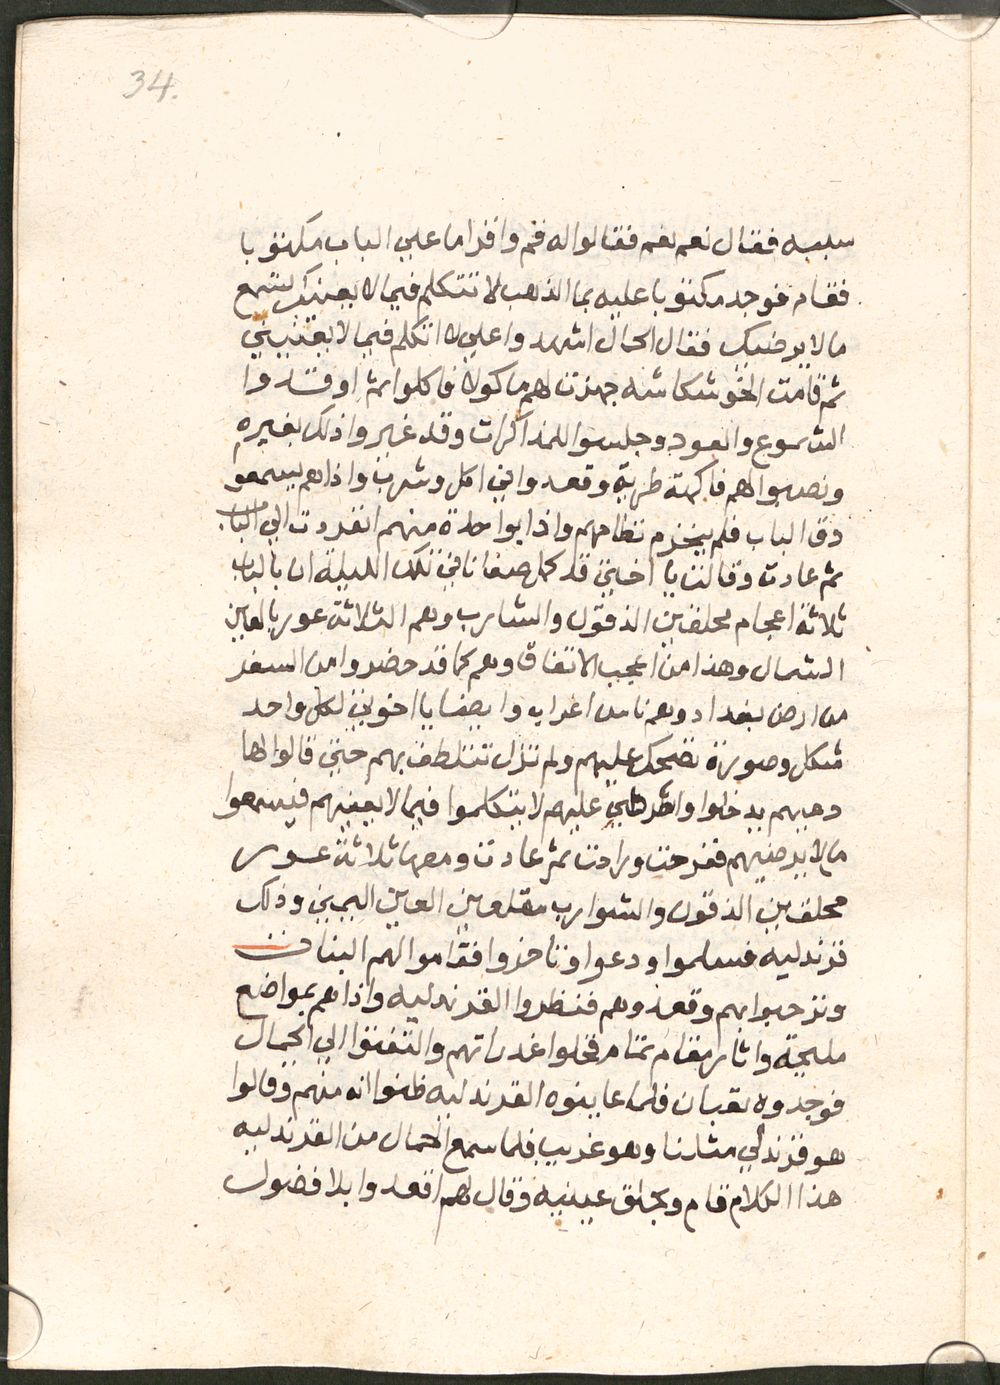 34.
سببه فقال نعم نعم فقالوا له قم واقرا ما علي الباب مكتوبا
فقام فوجد مكتوبا عليه بما الذهب لا تتكلم فيما لا يعنيك تسمع
ما لا يرضيك فقال الحمال اشهدوا علي لا اتكلم فيما لا يعنيني
ثم قامت الخوشكاشه جهزت لهم ماكولا فاكلوا ثم اوقدوا
الشموع والعود وجلسوا للمذاكرات وقد غيروا ذلك بغيره
ونصبوا لهم فاكهة طرية وقعدوا في اكل وشرب واذا هم يسمعو
دق الباب فلم ينخزم نظامهم واذا بواحدة منهم انفردت الي الباب
ثم عادت وقالت يا اختي قد كمل صفانا في تلك الليلة ان بالباب
ثلاثة اعجام محلقين الذقون والشارب وهم الثلاثة عور بالعين
الشمال وهذا من اعجب الاتفاق وهم كما قد حضروا من السفر
من ارض بغداد وهم ناس اغراب وايضا يا اخوتي لكل واحد
شكل وصورة تضحك عليهم ولم تزل تتلطف بهم حتي قالوا لها
دعيهم يدخلوا واشرطي عليهم لا يتكلموا فيما لا يعنيهم فيسمعوا
ما لا يرضيهم ففرحت وراحت ثم عادت ومعها ثلاثة عور
محلقين الذقون والشوارب مقلوعين العين اليمين وذلك
قرندليه فسلموا ودعوا وتاخروا فقاموا لهم البنات
وترحبوا بهم وقعدوهم فنظروا القرندليه واذا هم بمواضع
مليحة واثار مقام تمام فخلوا غداراتهم والتفتوا الي الحمال
فوجدوه تعبان فلما عاينوه القرندليه ظنوا انه منهم وقالوا
هو قرندلي مثلنا وهو غريب فلما سمع الحمال من القرندليه
هذا الكلام قام وبحلق عينيه وقال لهم اقعدوا بلا فضول